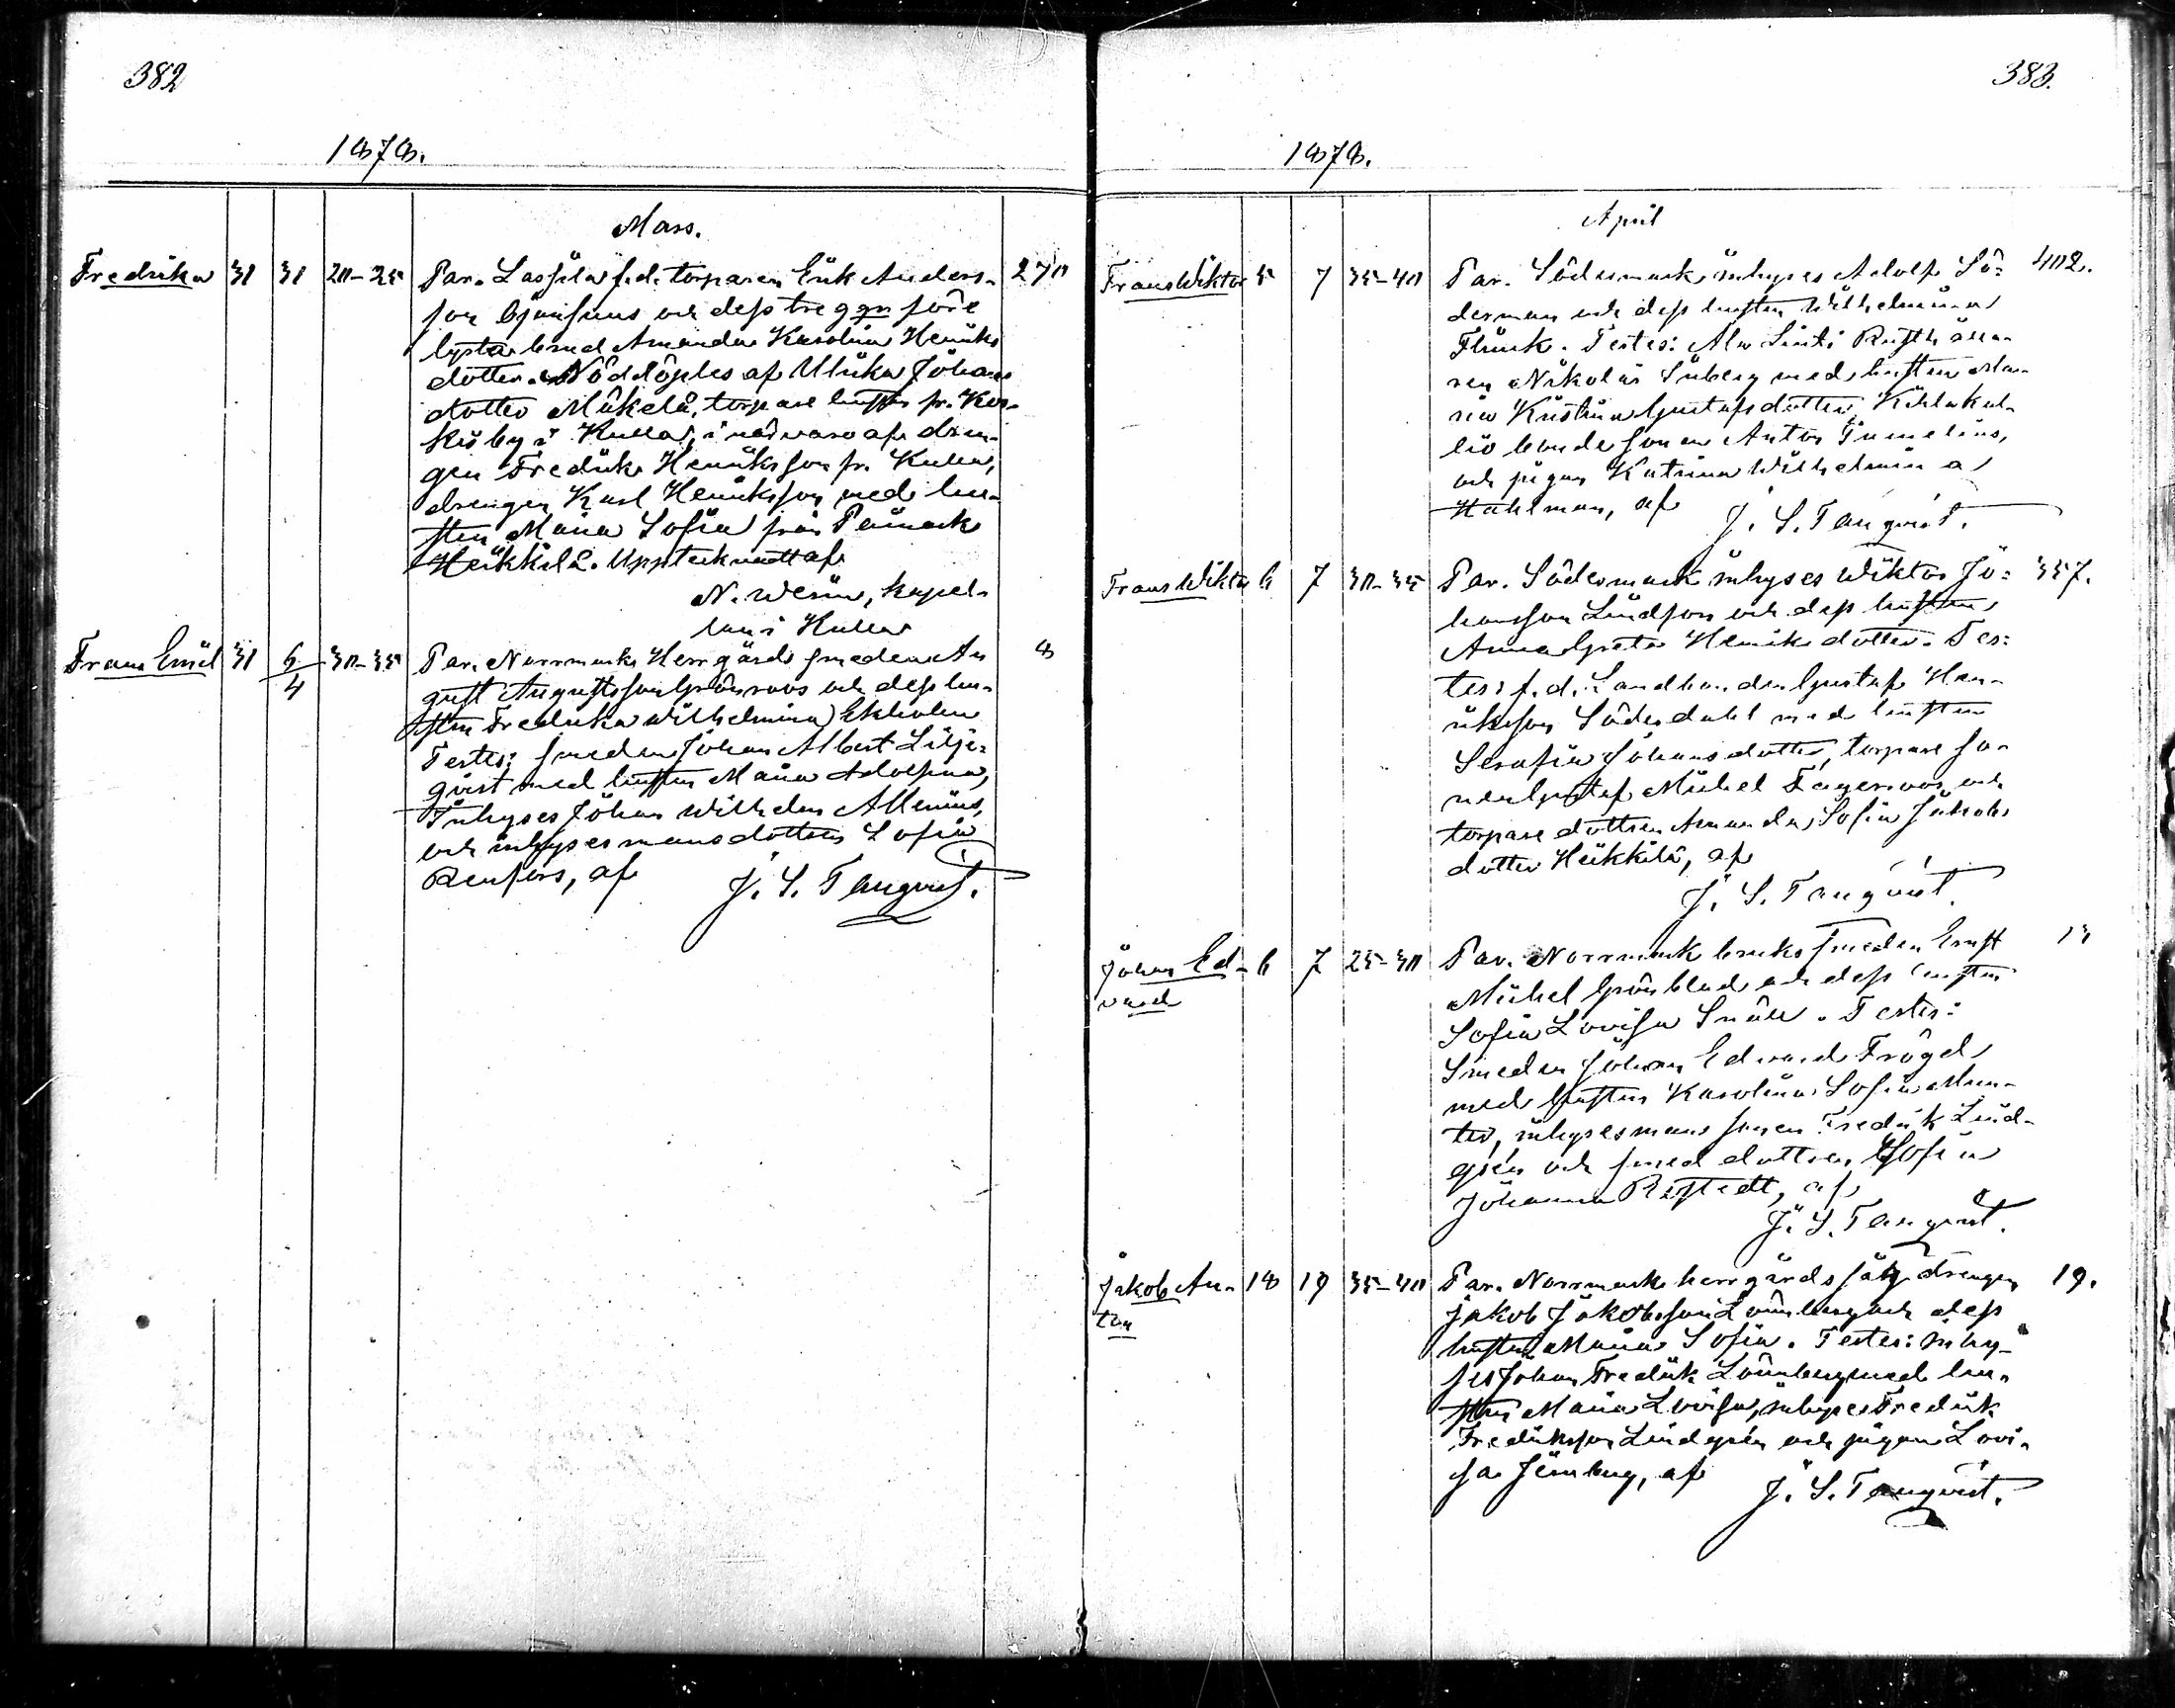 382
1878.
Mars.
Fredrika 31 31 20-25 Par. Lassila f.d. torparen Erik Anders- 270
son och dess tre ggr före
lysta brud Amanda Karolina Henriks
dotter. Nöddöptes af Ulrika Johans
dotter Mäkelä, torpare hustru fr.
by i Kulla, i närvaro af drän-
gen Fredrik Henriksson fr. Kulla,
drengen Karl Henriksson med hu-
strun Maria Sofia från Påmark
Heikkilä. Upptecknadt af
N. kapel-
lan i Kulla
Frans Emil 31 6/4 30-35 Par. Norrmarks Herrgårds smeden Au 8
gust Augustsson Grönroos och dess hu-
stru Fredrika Wilhelmina Ekholm
Testes: smeden Johan Albert Lilje-
qvist med hustru Maria Adolfina,
Inhyses Johan Wilhelm Allenius,
och inhysesmansdottren Sofia
Renfors, af J. S. Tanqvist.
383.
1878.
April
Frans Wiktor 5 7 35-40 Par. Södermark inhyses Adolf Sö- 402.
derman och dess hustru Wilhelmina
Flinck. Testes:
ren Nikolai med hustru Ma-
ria Kristina Gustafsdotter,
bondesonen Anton
och pigan Katrina Wilhelmina
Kahlman, af J. S. Tanqvist.
Frans Wiktor 6 7 30-35 Par. Södermark inhyses Wiktor Jo- 357.
hansson Lindfors och dess hustru
Anna Greta Henriksdotter. Tes-
tes: f.d. Landbonden Gustaf Hen-
riksson Söderdahl med hustru
Serafia Johansdotter, torpare so-
nen Gustaf Mikael Fagerroos och
torpare dottren Amanda Sofia Jakobs
dotter Heikkilä, af
J. S. Tanqvist.
Johan Ed- 6 7 25-30 Par. Norrmark bruks smeden Ernst 13
vard
Mikael Grönblad och dess hustru
Sofia Lovisa Snäll. Testes:
Smeden Johan Edvard Frögel
med hustru Karolina Sofia Mun-
ter, inhysesmans sonen Fredrik Lind-
gren och smed dottren Sofia
Johanna af
J. S. Tanqvist.
Jakob An- 18 19 35-40 Par. Norrmarks herrgårds drengen 19.
ton
Jakob Jakobsson Lönnberg och dess
hustru Maria Sofia. Testes: Inhy-
ses Johan Fredrik Lönnberg med hu-
stru Maria Lovisa, inhyses Fredrik
Fredriksson Lindgrén och pigan Lovi-
sa af J. S. Tanqvist.